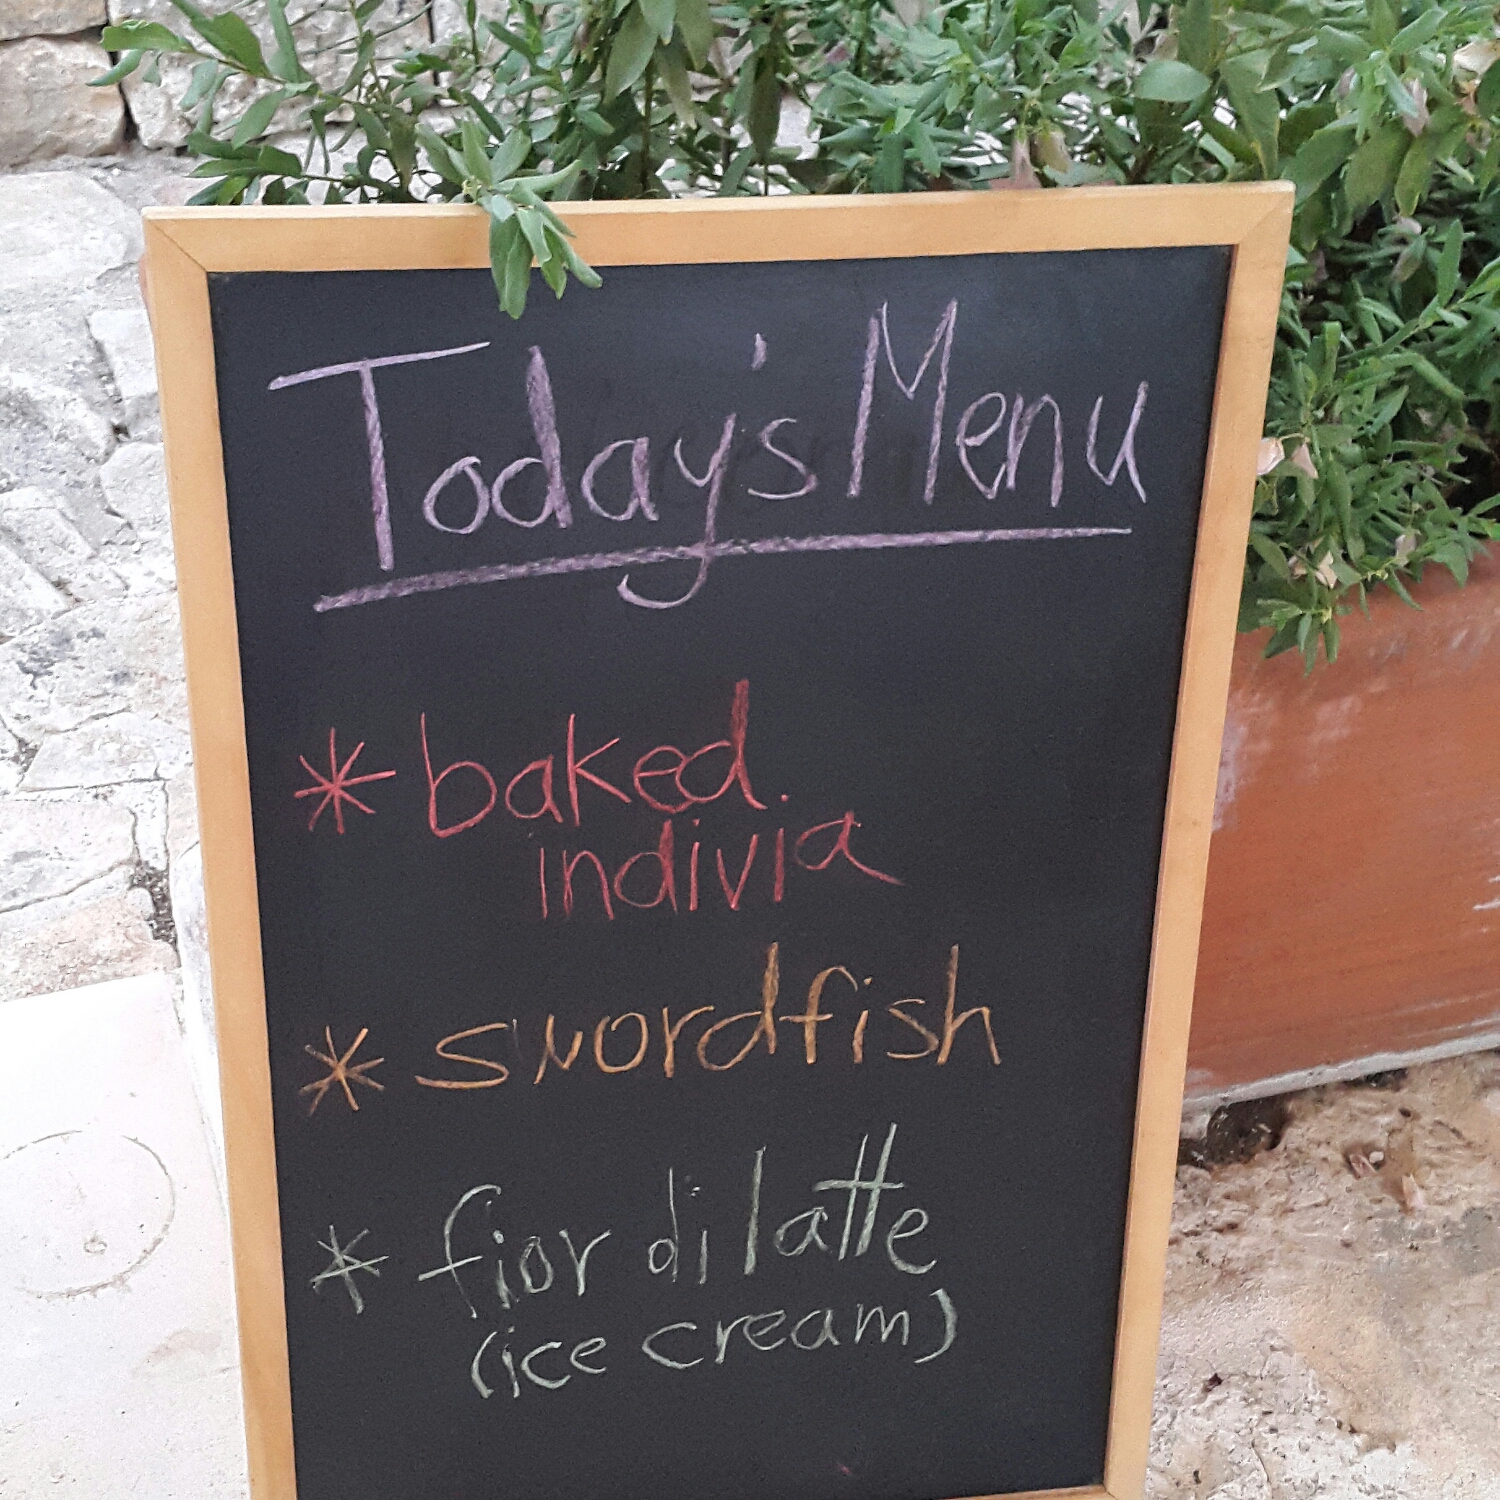 Today's Menu
* baked
indivia
* swordfish
* fior di latte
(ice cream)